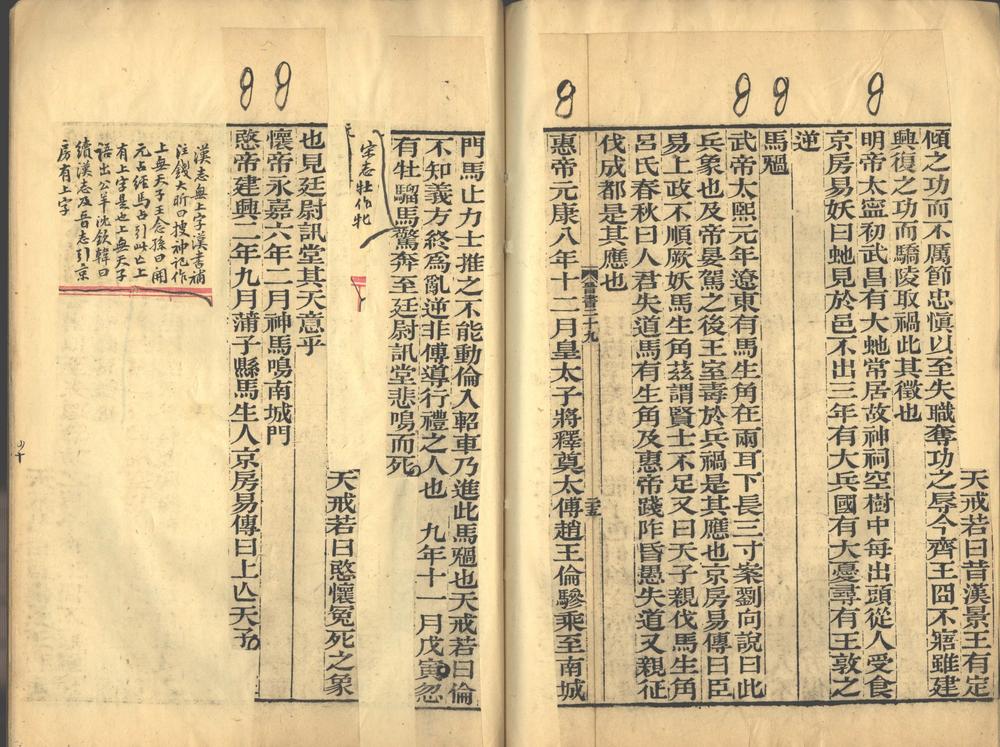 天戒若曰昔漢景王有定
傾之功而不厲節忠慎以至失職奪功之辱今齊王冏不寤雖建
興復之功而驕陵取禍此其徵也
明帝太寧初武昌有大虵常居故神祠空樹中每出頭從人受食
京房易妖曰虵見於邑不出三年有大兵國有大憂尋有王敦之
逆
馬禍
武帝太熙元年遼東有馬生角在兩耳下長三寸案劉向說曰此
兵象也及帝晏駕之後王室毒於兵禍是其應也京房易傳曰臣
易上政不順厥妖馬生角茲謂賢士不足又曰天子親伐馬生角
呂氏春秋曰人君失道馬有生角及惠帝踐阼昏愚失道又親征
伐成都是其應也
晉書二十九
惠帝元康八年十二月皇太子將釋奠太傅趙王倫驂乘至南城
門馬止力士推之不能動倫入軺車乃進此馬禍也天戒若曰倫
不知義方終爲亂逆非傅導行禮之人也 九年十一月戊寅忽
有牡騮馬驚奔至廷尉訊堂悲鳴而死
宋志牡作牝
天戒若曰愍懷冤死之象
也見廷尉訊堂其天意乎
懷帝永嘉六年二月神馬鳴南城門
愍帝建興二年九月蒲子縣馬生人京房易傳曰上亾天子
漢志無上字漢書補
注錢大昕曰搜神記作
上無天子王念孫曰開
元占經馬占引此亾上
有上字是也上無天子
語出公羊沈欽韓曰
續漢志及晉志引京
房有上字